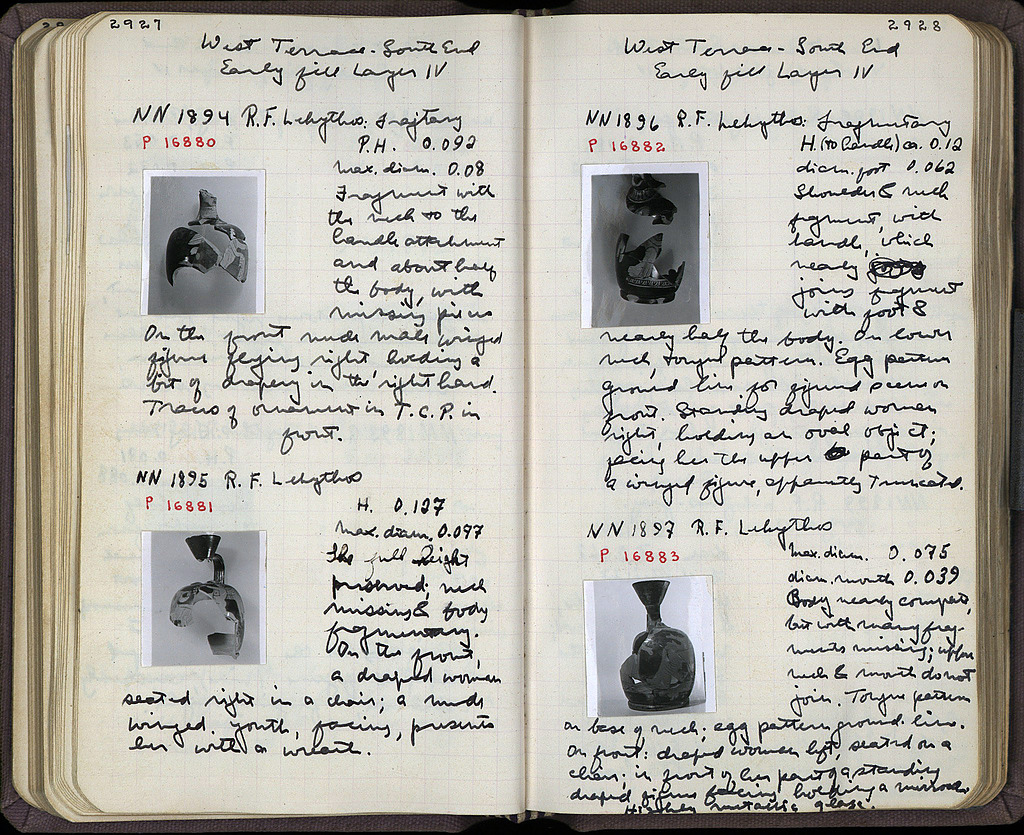 2927
West Terrace - South End
Early fill Layer IV
NN 1894 R.F. Lekythos: Fragtary
P 16880
P.H. 0.092
max. diam. 0.08
Fragment with
the neck to the
handle attachment
and about half
the body, with
missing pieces
On the front nude male winged
figure flying right, holding a
bit of drapery in the right hand.
Traces of ornament in T.C.P. in
front.
NN 1895 R.F. Lekythos
P 16881
H. 0.127
max. diam. 0.077
The full height
preserved; neck
missing & body
fragmentary.
On the front,
a draped woman
seated right in a chair; a nude
winged youth, facing, presents
her with a wreath.
2928
West Terrace - South End
Early fill Layer IV
NN 1896 R.F. Lekythos: Fragmentary
P 16882
H. (to handle) ca. 0.12
diam. foot 0.062
Shoulder & neck
fragment, with
handle, which
nearly
joins fragment
with foot &
nearly half the body. On lower
neck, tongue pattern. Egg pattern
ground line for figured scene on
front. Standing draped woman
right, holding an oval object;
facing her the upper part of
a winged figure, apparently truncated.
NN 1897 R.F. Lekythos
P 16883
max. diam. 0.075
diam. mouth 0.039
Body nearly complete,
but with many frag-
ments missing; upper
neck & mouth do not
join. Tongue pattern
on base of neck; egg pattern ground line.
On front: draped woman left, seated on a
chair; in front of her part of a standing
draped figure facing holding a mirror.
metallic glaze.